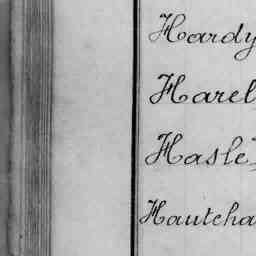 Hardy
Harel
Hasle
Hautcha